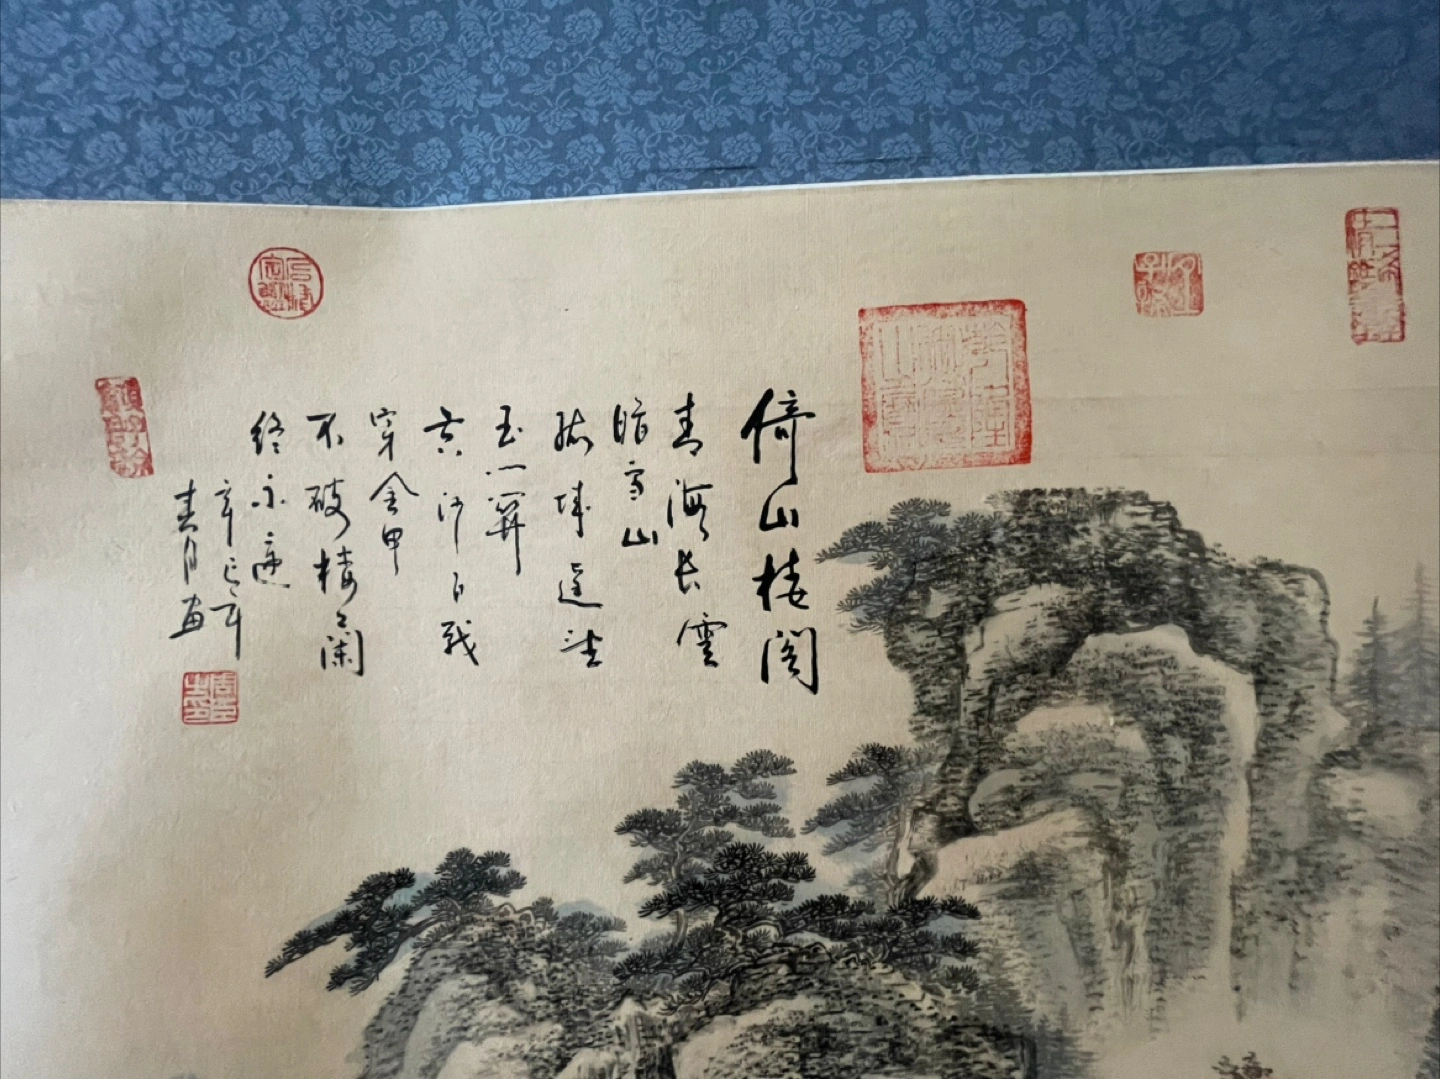 倚山楼阁
青海长雲
暗雪山
孤城遥望
玉门関
黄沙百战
穿金甲
不破楼兰
终不还
辛巳年
春月画